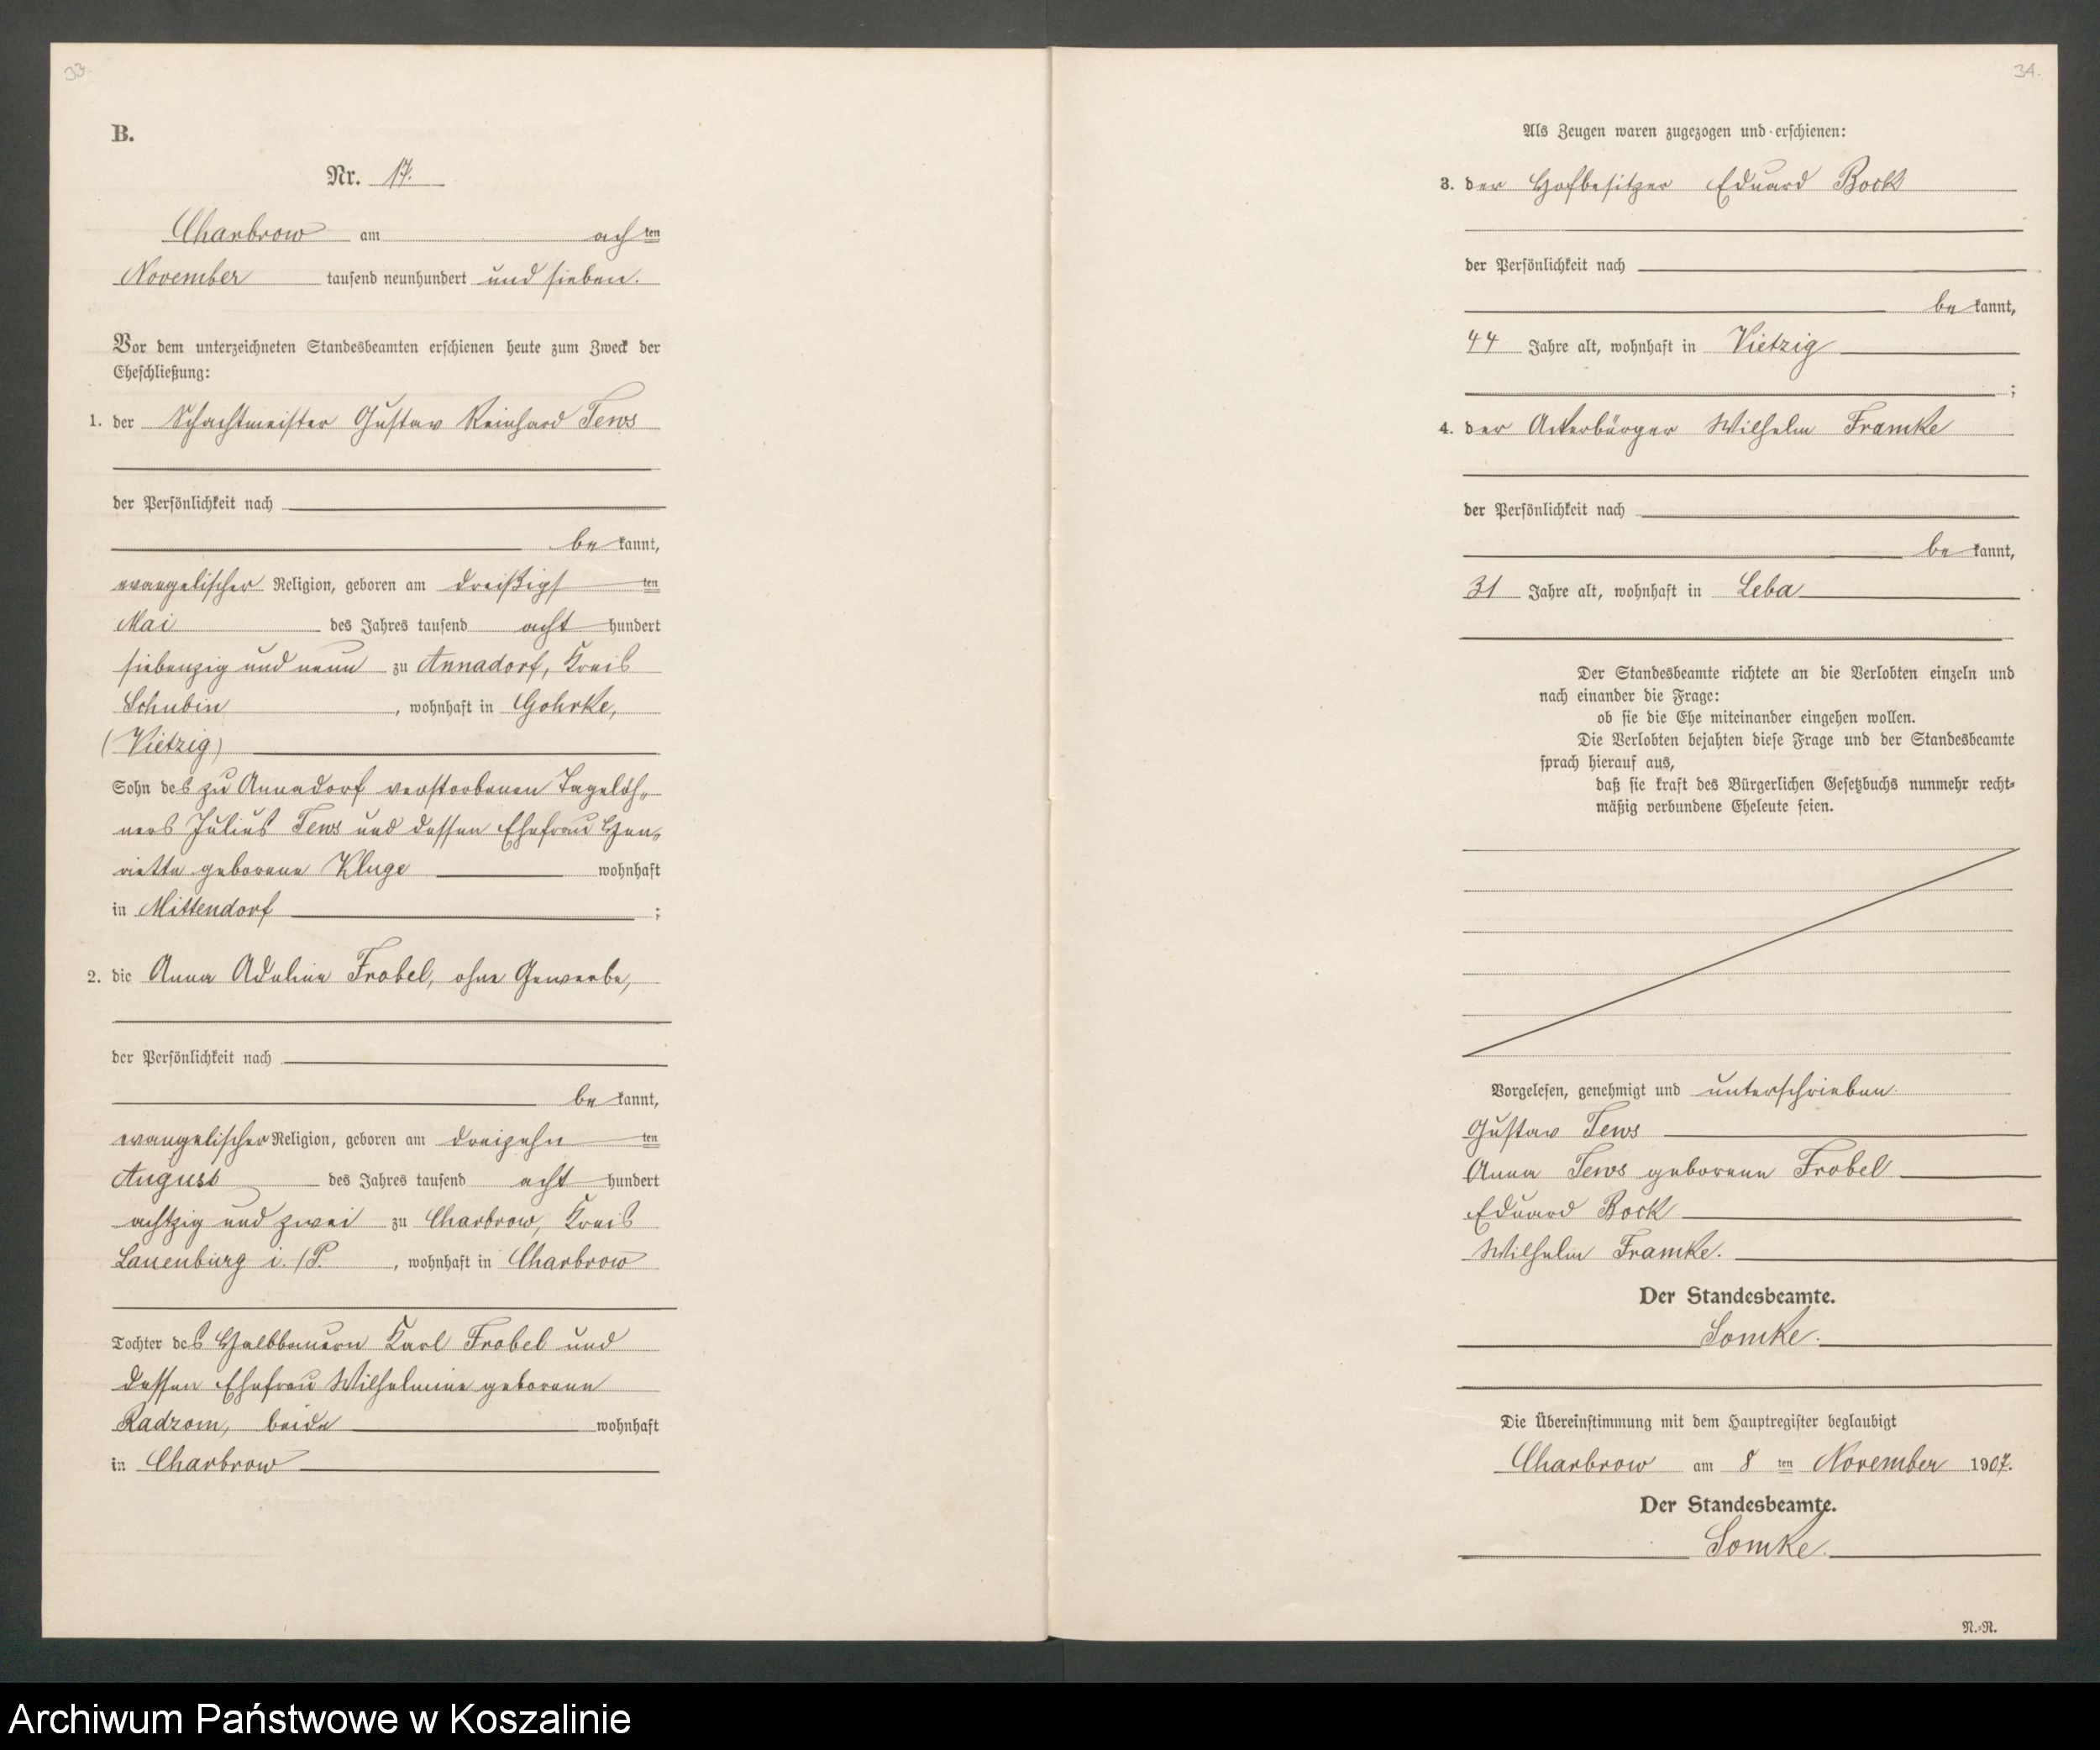 33.
B.
Nr. 17.
Charbrow am achten
November tausend neunhundert und sieben.
Vor dem unterzeichneten Standesbeamten erschienen heute zum Zweck der
Eheschließung:
1. der Schachtmeister Gustav Reinhard Tews
der Persönlichkeit nach
bekannt,
evangelischer Religion, geboren am dreißigsten
Mai des Jahres tausend acht hundert
siebenzig und neun zu Annadorf, Kreis
Schubin, wohnhaft in Gohrke,
(Vietzig)
Sohn des zu Annadorf verstorbenen Tagelöh„
ners Julius Tews und dessen Ehefrau Hen„
riette geborene Kluge wohnhaft
in Mittendorf ;
2. die Anna Adeline Frobel, ohne Gewerbe,
der Persönlichkeit nach
bekannt,
evangelischer Religion, geboren am dreizehnten
August des Jahres tausend acht hundert
achtzig und zwei zu Charbrow, Kreis
Lauenburg i./P., wohnhaft in Charbrow
Tochter des Halbbauern Karl Frobel und
dessen Ehefrau Wilhelmine geborene
Radzom, beide wohnhaft
in Charbrow
34.
Als Zeugen waren zugezogen und erschienen:
3. der Hofbesitzer Eduard Bock
der Persönlichkeit nach
bekannt,
44 Jahre alt, wohnhaft in Vietzig
;
4. der Ackerbürger Wilhelm Framke
der Persönlichkeit nach
bekannt,
31 Jahre alt, wohnhaft in Leba
Der Standesbeamte richtete an die Verlobten einzeln und
nach einander die Frage:
ob sie die Ehe miteinander eingehen wollen.
Die Verlobten bejahten diese Frage und der Standesbeamte
sprach hierauf aus,
daß sie kraft des Bürgerlichen Gesetzbuchs nunmehr recht-
mäßig verbundene Eheleute seien.
Vorgelesen, genehmigt und unterschrieben
Gustav Tews
Anna Tews geborene Frobel
Eduard Bock
Wilhelm Framke.
Der Standesbeamte.
Somke.
Die Übereinstimmung mit dem Hauptregister beglaubigt
Charbrow am 8ten November 1907.
Der Standesbeamte.
Somke.
N.-R.
Archiwum Państwowe w Koszalinie